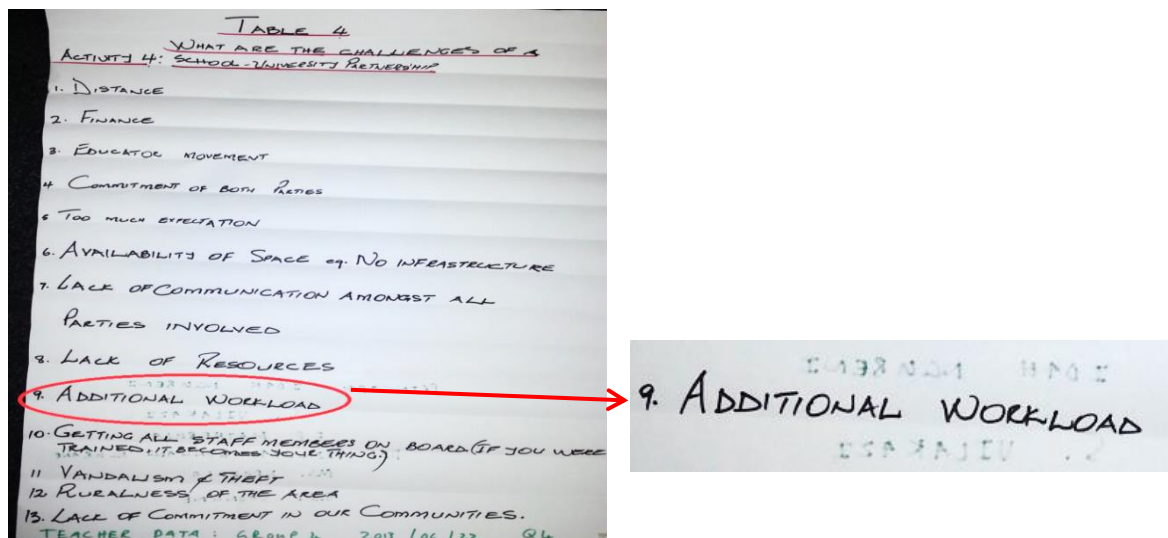 TABLE 4
WHAT ARE THE CHALLENGES OF A
ACTIVITY 4: SCHOOL-UNIVERSITY PARTNERSHIP
1. DISTANCE
2. FINANCE
3. EDUCATOR MOVEMENT
4 COMMITMENT OF BOTH PARTIES
5 TOO MUCH EXPECTATION
6. AVAILABILITY OF SPACE eg. NO INFRASTRUCTURE
7. LACK OF COMMUNICATION AMONGST ALL
PARTIES INVOLVED
8. LACK OF RESOURCES
9. ADDITIONAL WORKLOAD
10. GETTING ALL STAFF MEMBERS ON BOARD (IF YOU WERE
TRAINED, IT BECOMES YOUR THING)
11 VANDALISM & THEFT
12 RURALNESS OF THE AREA
13. LACK OF COMMITMENT IN OUR COMMUNITIES.
TEACHER DATA: GROUP 4 Q4
9. ADDITIONAL WORKLOAD